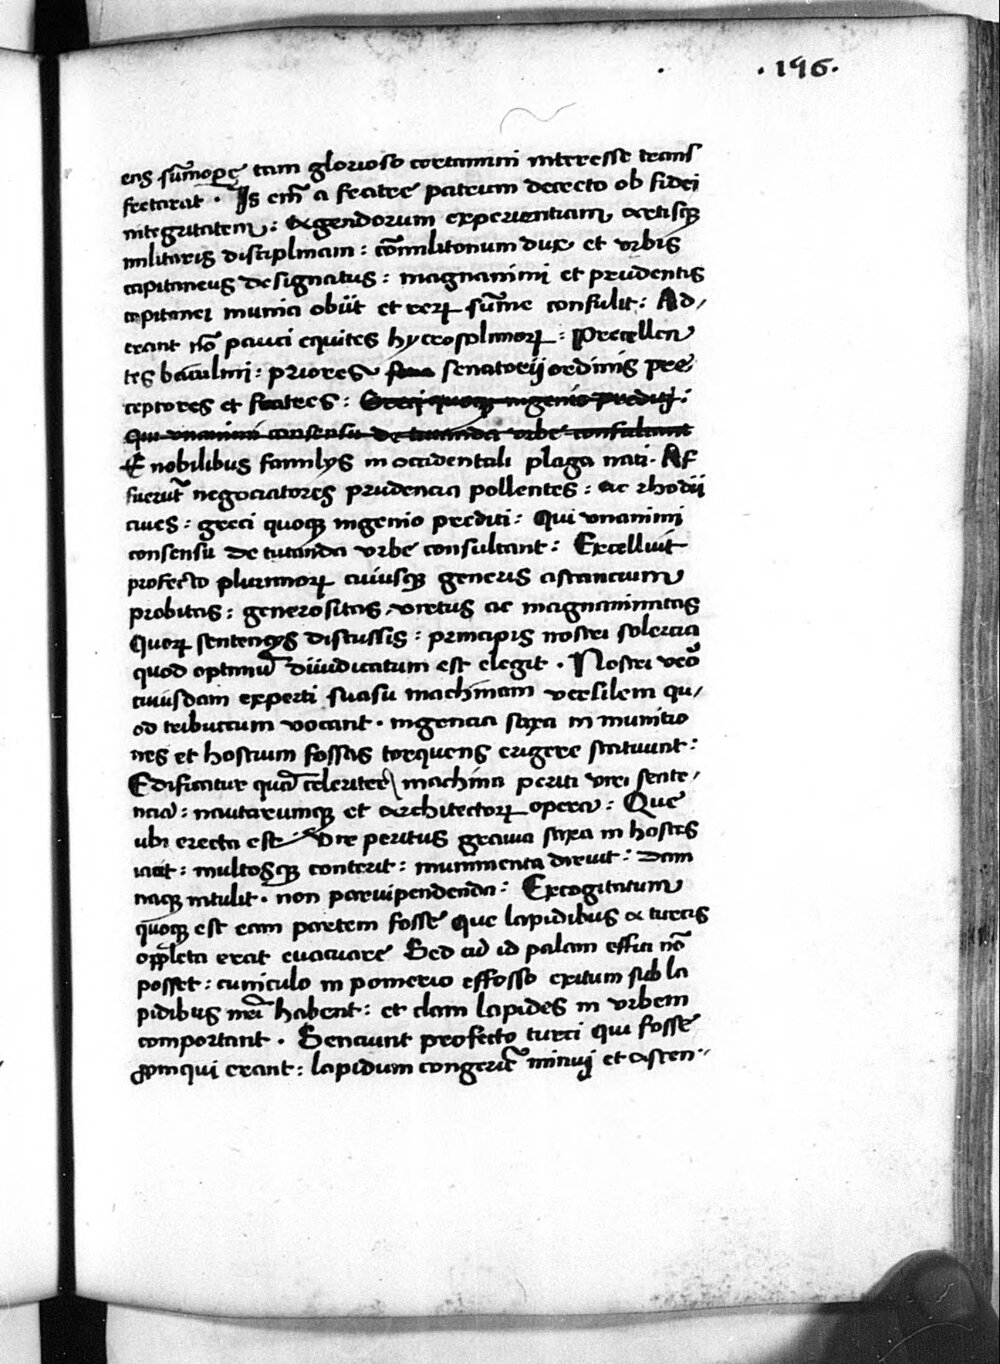 · 196 ·
ens sum̄op̱e tam glorioso certamini interesse trans
fretarat · Is em̄ a fratre patrum decreto ob fidei
integritatem : & agendorum experientiam artisqꝫ
militaris disciplinam : com̄ilitonum dux et vrbis
capitaneus designatus : magnanimi et prudentis
capitanei munia obiit et reꝝ sum̄e consulit : Ad/
erant nō pauci equites hyerosolimoꝝ : Precellen
tes baculini : priores senatorij ordinis pre
ceptores et fratres : Greci quoqꝫ ingenio prediti :
Qui vnanimi consensu de tutanda vrbe consultant
E nobilibus familys in occidentali plaga nati · Af
fuerūt negociatores prudencia pollentes : ac rhodii
ciues : greci quoqꝫ ingenio prediti : Qui vnanimi
consensu de tutanda vrbe consultant : Excelluit
profecto plurimoꝝ cuiusqꝫ generis astancium
probitas : generositas, virtus ac magnanimitas
Quoꝝ sentencys discussis : principis nostri solercia
quod optimū diiudicatum est elegit · Nostri vēo
cuiusdam experti suasu machinam versilem qu/
od tributtum vocant · ingencia saxa in munitio
nes et hostium fossas torquens erigere statuunt :
Edificatur quā celeriter machina periti viri sente/
ncia : nautarumqꝫ et architectoꝝ opera : Que
ubi erecta est · Vir peritus grauia saxa in hostes
iacit : multosqꝫ conterit : munimenta diruit : dam
naqꝫ intulit · non paruipendenda : Excogitatum
quoqꝫ est eam partem fosse que lapidibus a turcis
opp̄leta erat euacuare Sed cū id palam effici nō
posset : cuniculo in pomerio effosso exitum sub la
pidibus nrī habent : et clam lapides in vrbem
comportant · Senciunt profecto turci qui fosse
ꝓximqui erant : lapidum congeriē minuij et ascen